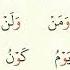 وَمَنْ وَلَنْ
يَوْمُ كَوْنُ